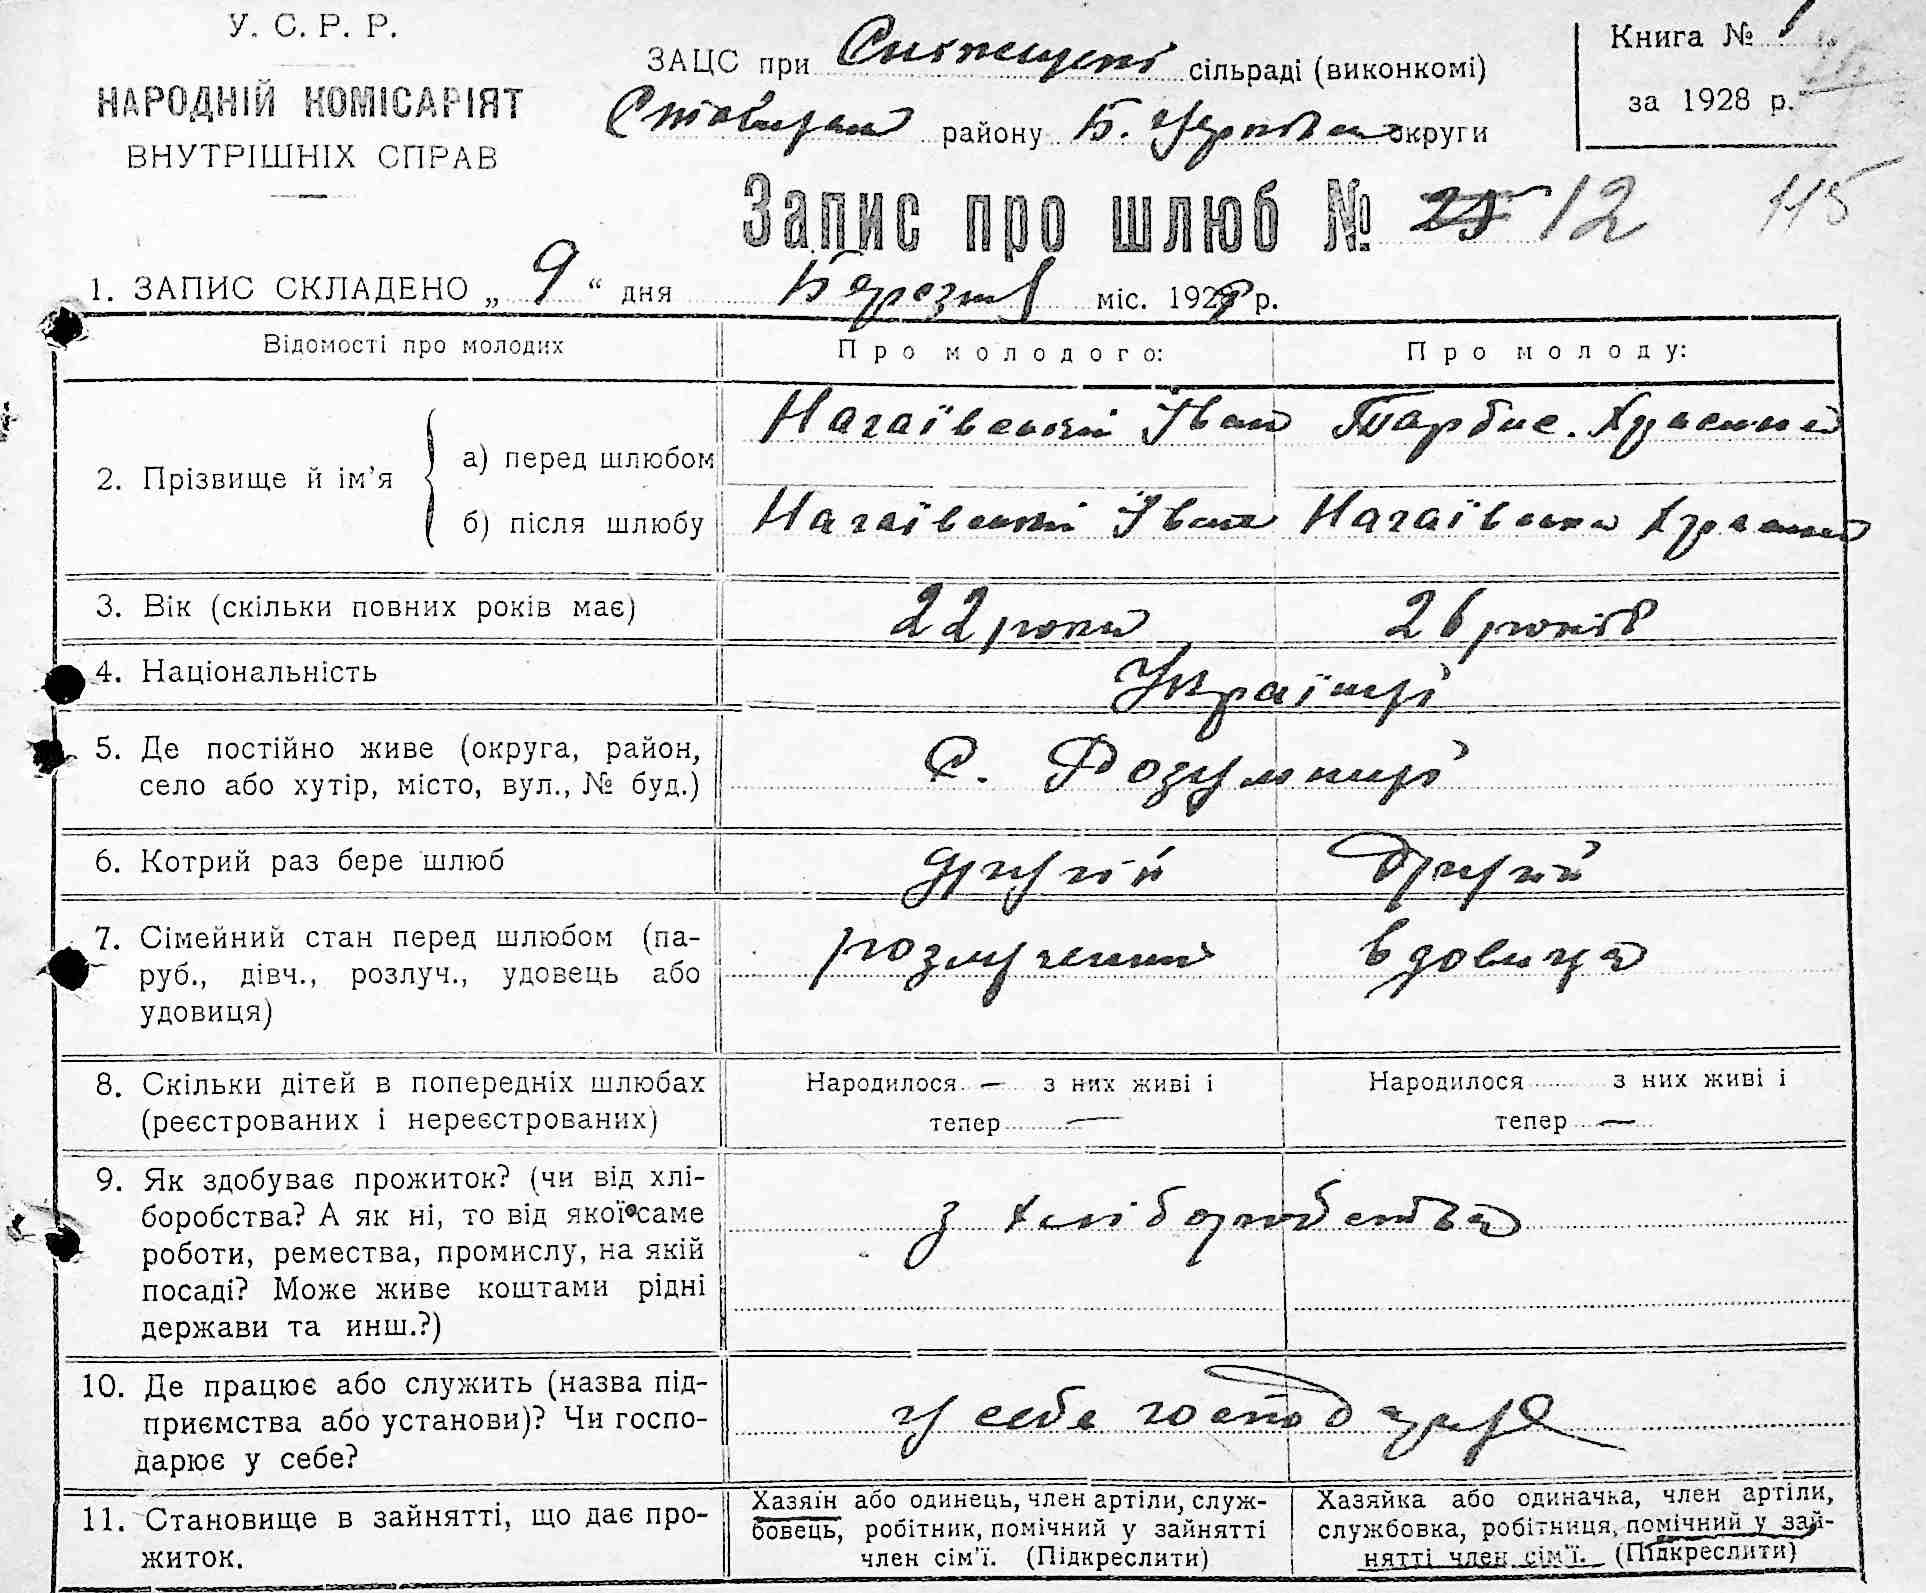 У. С. Р. Р.
НАРОДНІЙ КОМІСАРІЯТ
ВНУТРІШНІХ СПРАВ
ЗАЦС при сільраді (виконкомі)
району Б. Церківск округи
Книга № 1
за 1928 р.
Запис про шлюб № 12
115
1. ЗАПИС СКЛАДЕНО „ 9 “ дня Березня міс. 1928 р.
Відомості про молодих Про молодого: Про молоду:
2. Прізвище й ім’я
а) перед шлюбом Нагаївський Іван
б) після шлюбу Нагаївський Іван Нагаївська
3. Вік (скільки повних років має) 22 роки 26 років
4. Національність Українці
5. Де постійно живе (округа, район, село або хутір, місто, вул., № буд.) С. Розумниці
6. Котрий раз бере шлюб другий другий
7. Сімейний стан перед шлюбом (па-
руб., дівч., розлуч., удовець або
удовиця)
розлучений вдовиця
8. Скільки дітей в попередніх шлюбах
(реєстрованих і нереєстрованих)
Народилося — з них живі і
тепер —
Народилося з них живі і
тепер —
9. Як здобуває прожиток? (чи від хлі-
боробства? А як ні, то від якої саме
роботи, ремества, промислу, на якій
посаді? Може живе коштами рідні
держави та инш.?)
з хліборобства
10. Де працює або служить (назва під-
приємства або установи)? Чи госпо-
дарює у себе?
у себе господарює
11. Становище в зайнятті, що дає про-
житок.
Хазяїн або одинець, член артіли, служ-
бовець, робітник, помічний у зайнятті
член сім’ї. (Підкреслити)
Хазяйка або одиначка, член артіли,
службовка, робітниця, помічний у зай-
нятті член сім’ї. (Підкреслити)